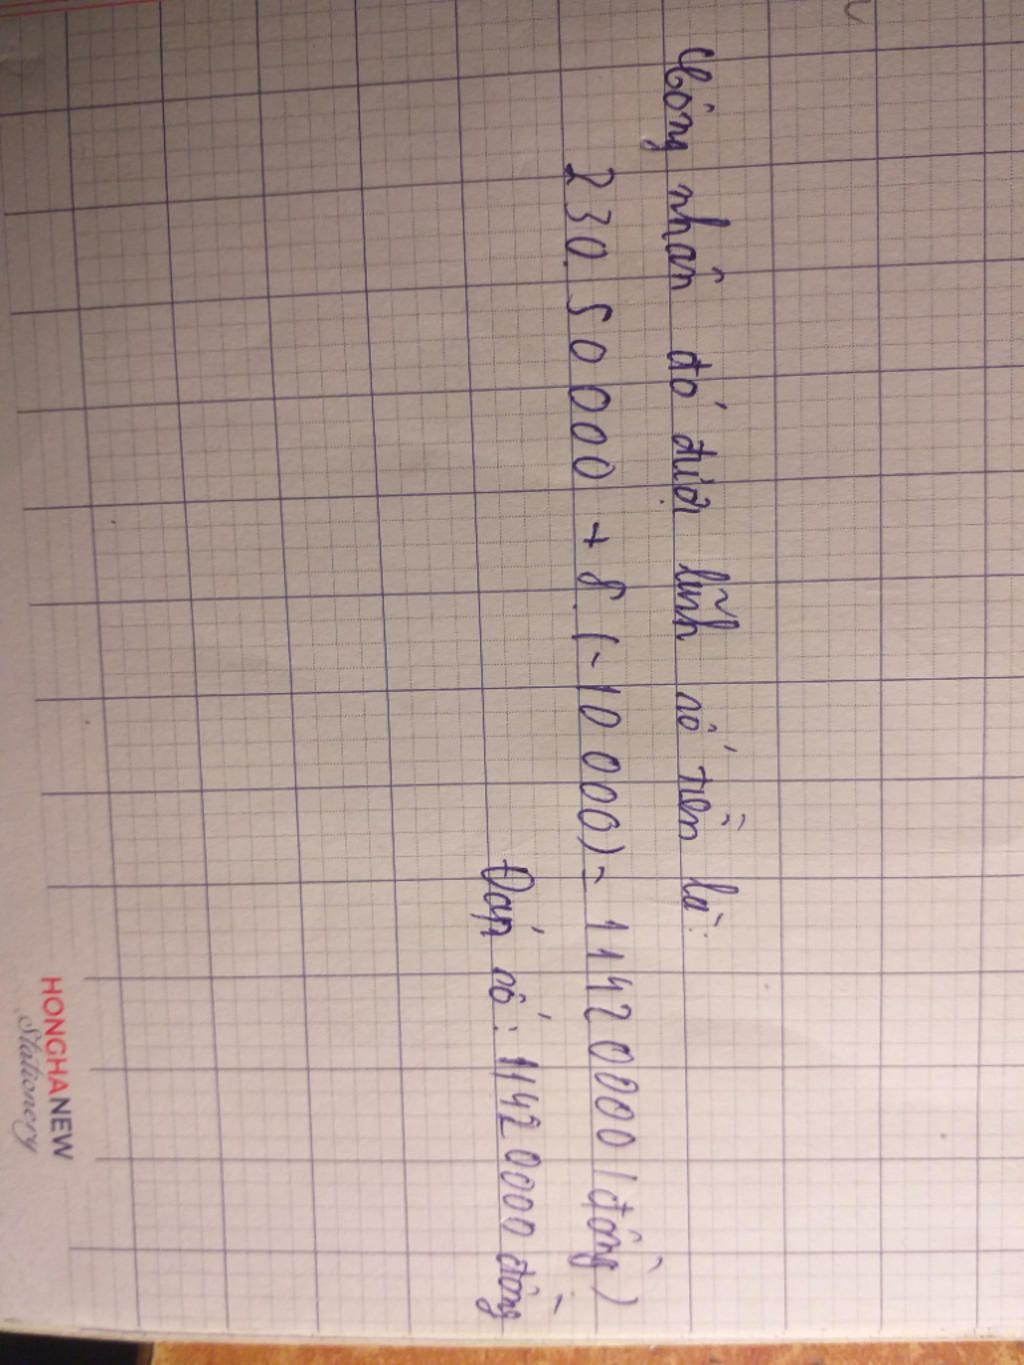 Công nhân đó được lĩnh số tiền là:
230. 50 000 + 8. (-10 000) = 1142 0000 (đồng)
Đáp số: 1142 0000 đồng
HONGHANEW
Stationery